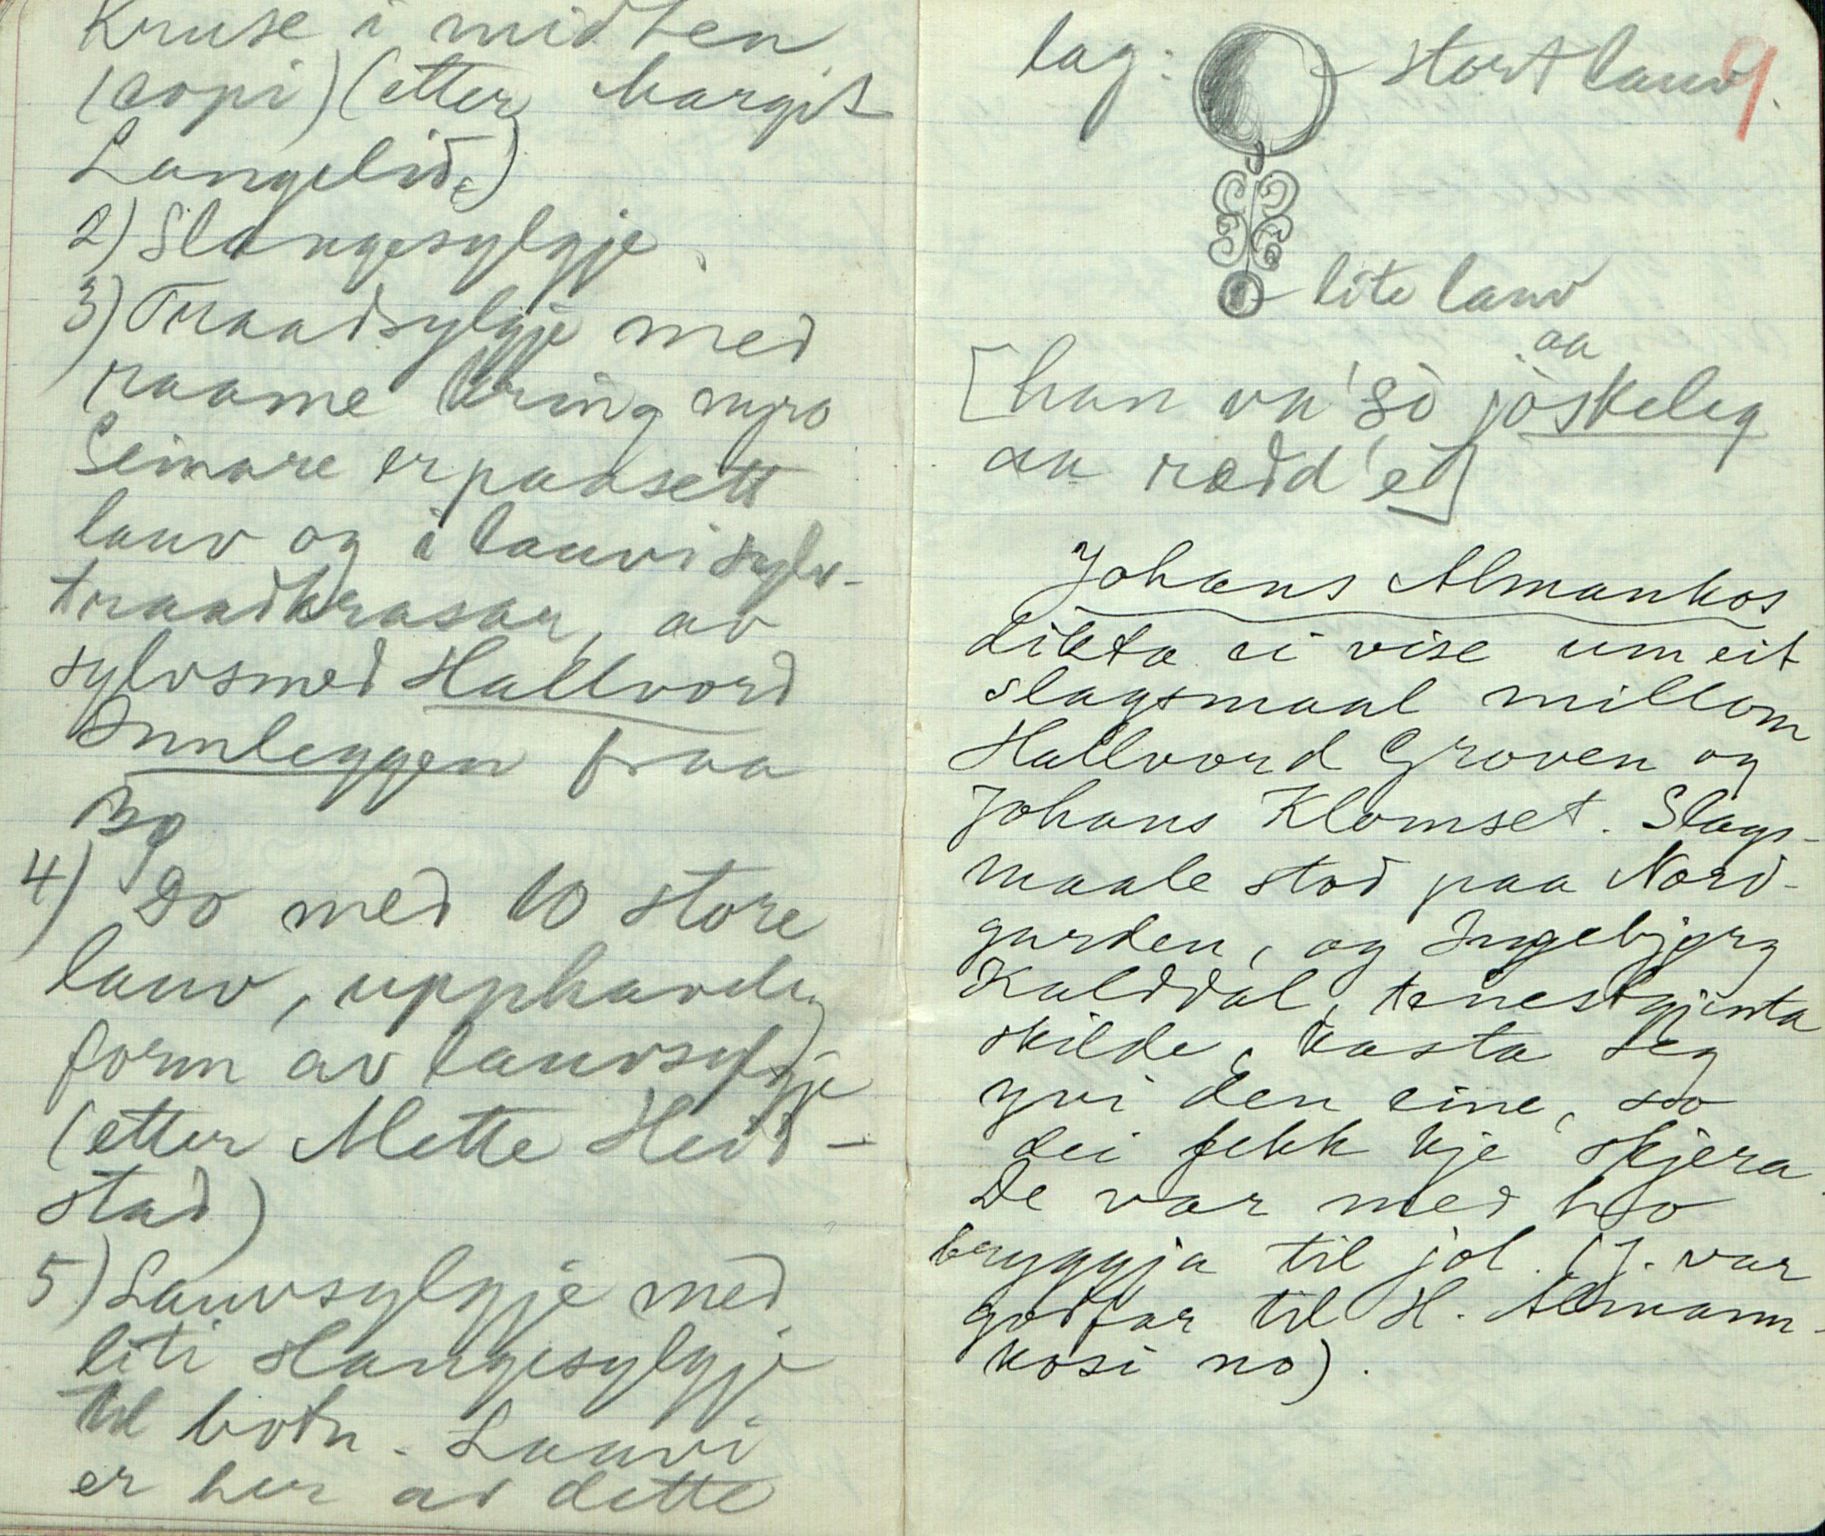 Kruse i midten
(copi) (etter Margit
Langelid.)
2) Slangesylgje.
3) Traadsylgje med
raame kring myro
Seinare er paasett
lauv og i lauvi sylv-
traadkrasar, av
sylvsmed Hallvord
Innleggen fraa
Bø
4) Do med 10 store
lauv, upphavleg
form av lauvsylgje
(etter Mette Heid-
stad)
5) Lauvsylgje med
liti slangesylgje
til botn. Lauvi
er her av dette
9.
lag: stort lauv
lite lauv
aa
[han va' so jöskeleg
aa rædd'e]
Johans Almankos
dikta ei vise um eit
slagsmaal millom
Hallvord Groven og
Johans Klomset. Slags-
maale stod paa Nord-
garden, og Ingebjørg
Kulddal, tenestgjenta
skilde, kasta seg
yvi den eine, so
dei fekk kje skjera.
De var med ho
bryggja til jol. (J. var
godfar til H. Almann-
kosi no).